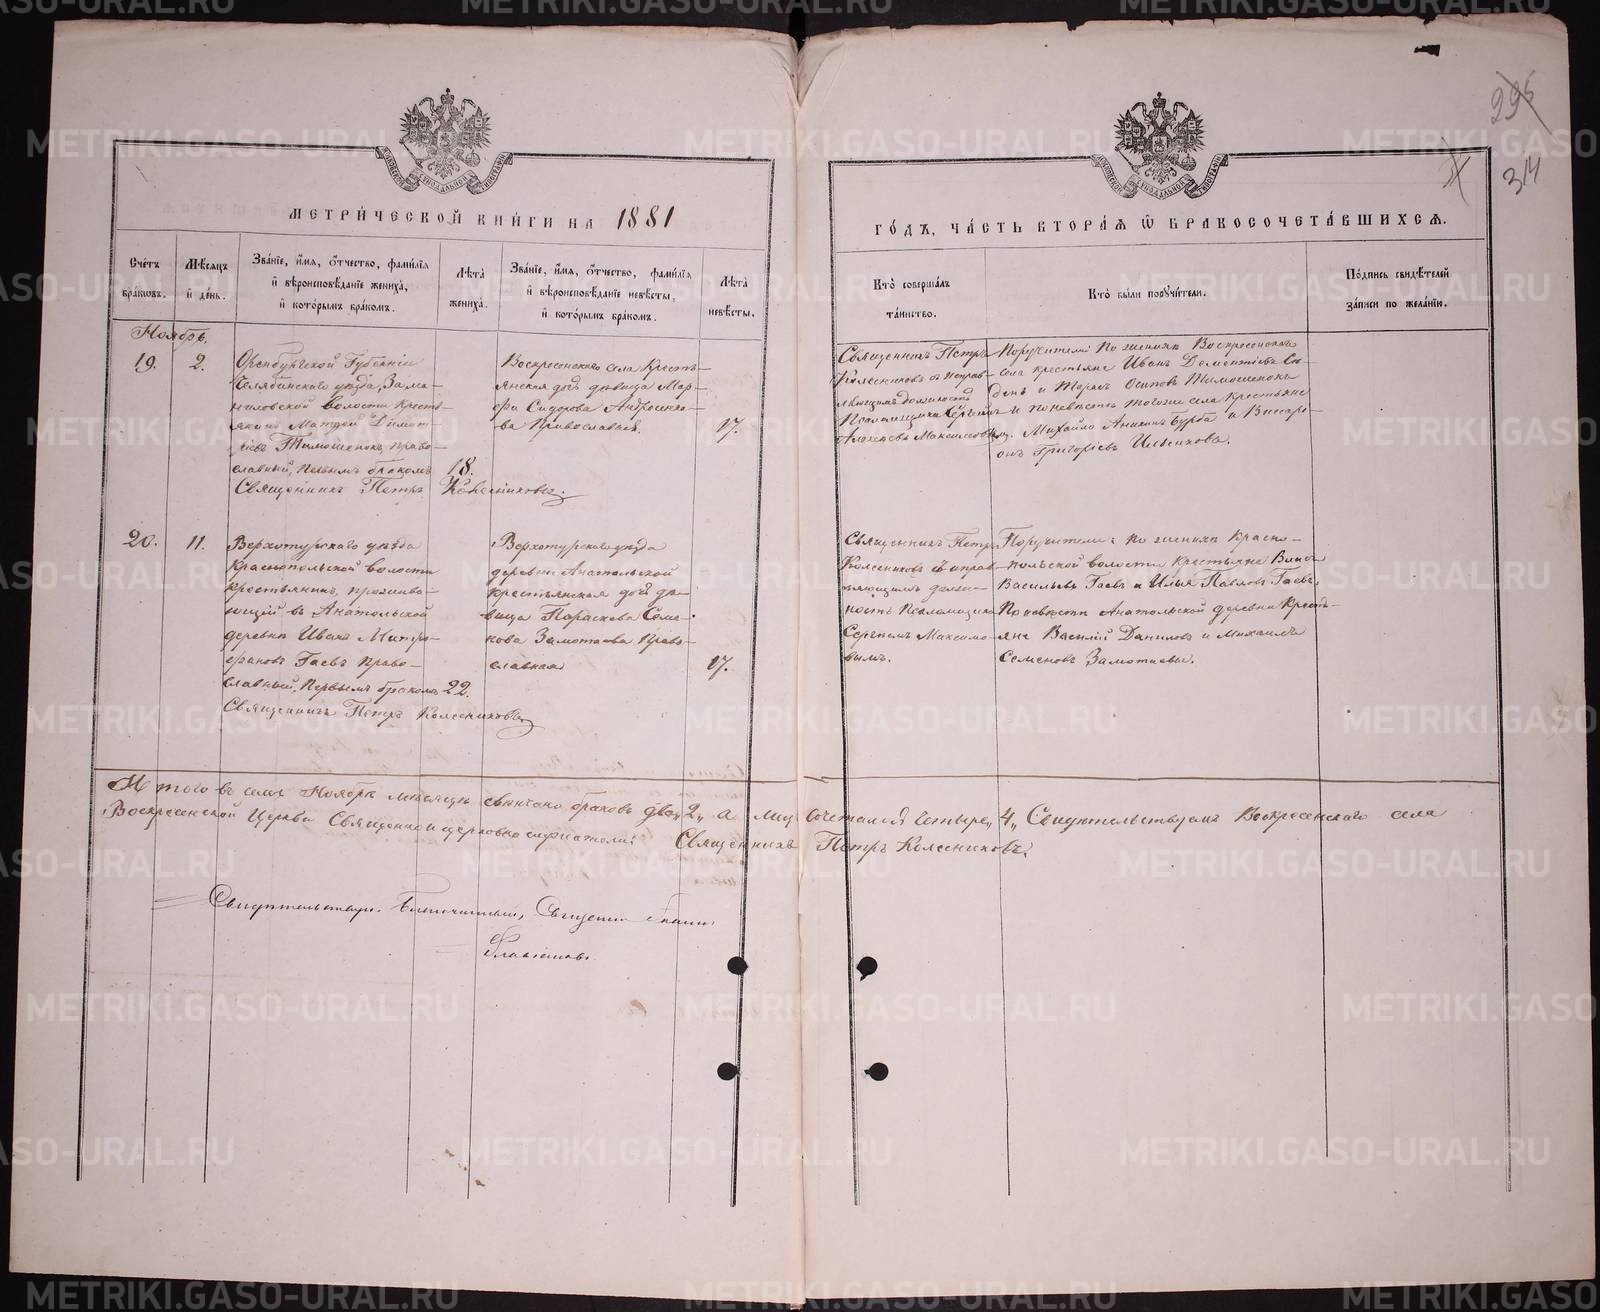 295
314
МЕТРИ́ЧЕСКОЙ КНИ́ГИ НА 1881
ГО́ДЪ, ЧА́СТЬ ВТОРА́Я Ѿ БРАКОСОЧЕТА́ВШИХСЯ.
Сче́тъ бра́ковъ.
Мѣ́сяцъ и҆ де́нь.
Зва́нїе, и҆́мя, о҆́тчество, фами́лїя и҆ вѣроисповѣ́данїе жениха̀, и҆ кото́рымъ бра́комъ.
Лѣ́та жениха̀.
Зва́нїе, и҆́мя, о҆́тчество, фами́лїя и҆ вѣроисповѣ́данїе невѣ́сты, и҆ кото́рымъ бра́комъ.
Лѣ́та невѣ́сты.
Кто̀ соверша́лъ та́инство.
Кто̀ бы́ли пору́чители.
По́дпись свидѣ́телей за́писи по жела́нїю.
Ноябрь.
19.
2.
Оренбургской Губерніи
Челябинскаго уѣзда,
волости кресть-
янинъ Матвей Димит-
ріевъ Тимошенокъ, право-
славный, первымъ бракомъ
18.
Священникъ Петръ Колесниковъ.
Воскресенскаго села Кресть-
янская дочь дѣвица Мар-
фа Сидорова Андросенко-
ва Православная.
17.
Священникъ Петръ
Колесниковъ съ исправ-
ляющимъ должность
Псаломщика Сергіемъ
Максимовымъ.
Поручители: по женихѣ Воскресенскаго
села крестьяне Иванъ Дементіевъ
и Марко Осиповъ Тимошенокъ
и по невѣстѣ тогоже села крестьяне
Михайло Аникинъ Бурба и Виссарі-
онъ Григоріевъ
20.
11.
Верхотурскаго уѣзда
Краснопольской волости
крестьянинъ, прожива-
ющій въ Анатольской
деревнѣ Иванъ Митро-
фановъ Гаевъ право-
славный, первымъ бракомъ
22.
Священникъ Петръ Колесниковъ
Верхотурскаго уѣзда
деревни Анатольской
крестьянская дочь дѣ-
вица Параскева Семе-
нова Замотаева Право-
славная
17.
Священникъ Петръ
Колесниковъ съ исправ-
ляющимъ долж-
ность Псаломщика
Сергіемъ Максимо-
вымъ.
Поручители: по женихѣ Красно-
польской волости крестьяне
Васильевъ Гаевъ и Илья Павловъ Гаевъ,
По невѣстѣ Анатольской деревни Кресть-
яне Василій Даниловъ и Михаилъ
Семеновъ Замотаевы.
Итого въ семъ Ноябрѣ мѣсяцѣ вѣнчано браковъ два „2„ а лицъ сочеталося четыре „4„ Свидѣтельствуемъ Воскресенскаго села
Воскресенской Церкви Священно и церковно служители: Священникъ Петръ Колесниковъ.
Свидѣтельствую. Благочинный, Священникъ